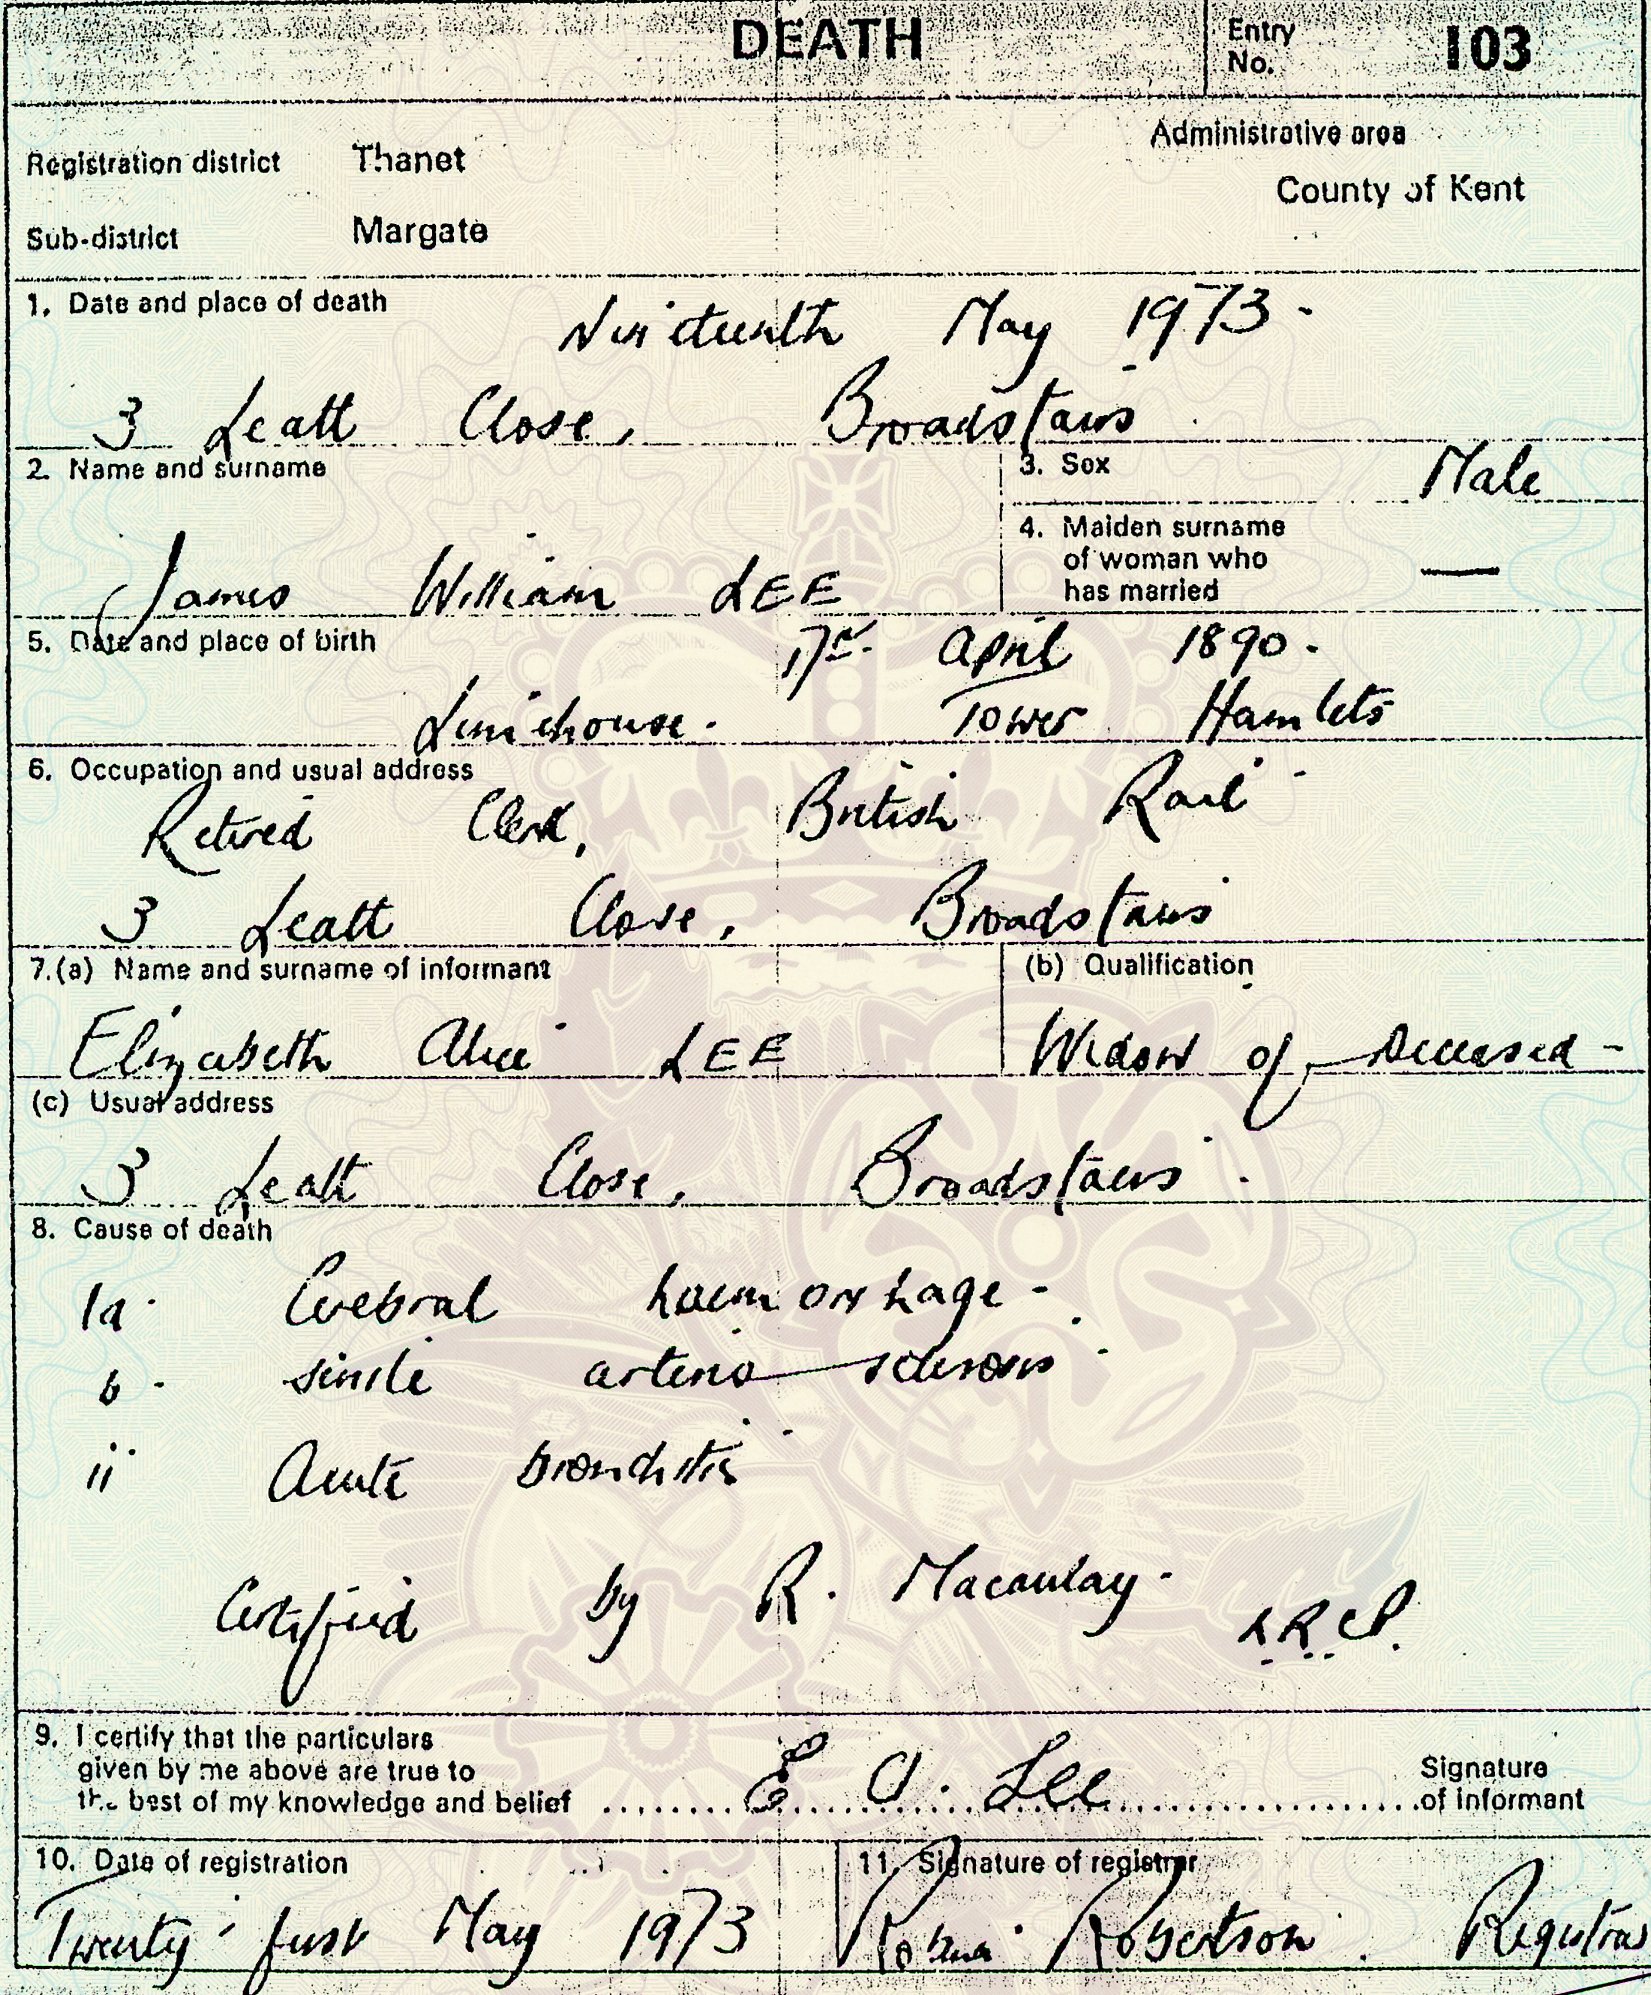 DEATH
Entry No. 103
Administrative area
Registration district Thanet
County of Kent
Sub-district Margate
1. Date and place of death
Nineteenth May 1973 -
3 Leatt Close, Broadstairs
2. Name and surname
James William LEE
3. Sex Male
4. Maiden surname
of woman who
has married —
5. Date and place of birth
April 1890 -
Limehouse. Tower Hamlets
6. Occupation and usual address
Retired Clerk, British Rail
3 Leatt Close, Broadstairs
7.(a) Name and surname of informant
Elizabeth Alice LEE
(b) Qualification
Widow of Deceased -
(c) Usual address
3 Leatt Close, Broadstairs.
8. Cause of death
1a. Cerebral haemorrhage -
b - senile arterio-sclerosis
ii Acute bronchitis
Certified by R. Macaulay. L.R.C.P.
9. I certify that the particulars
given by me above are true to
the best of my knowledge and belief E A. Lee
Signature
of informant
10. Date of registration
Twenty-first May 1973
11. Signature of registrar
Robertson. Registrar